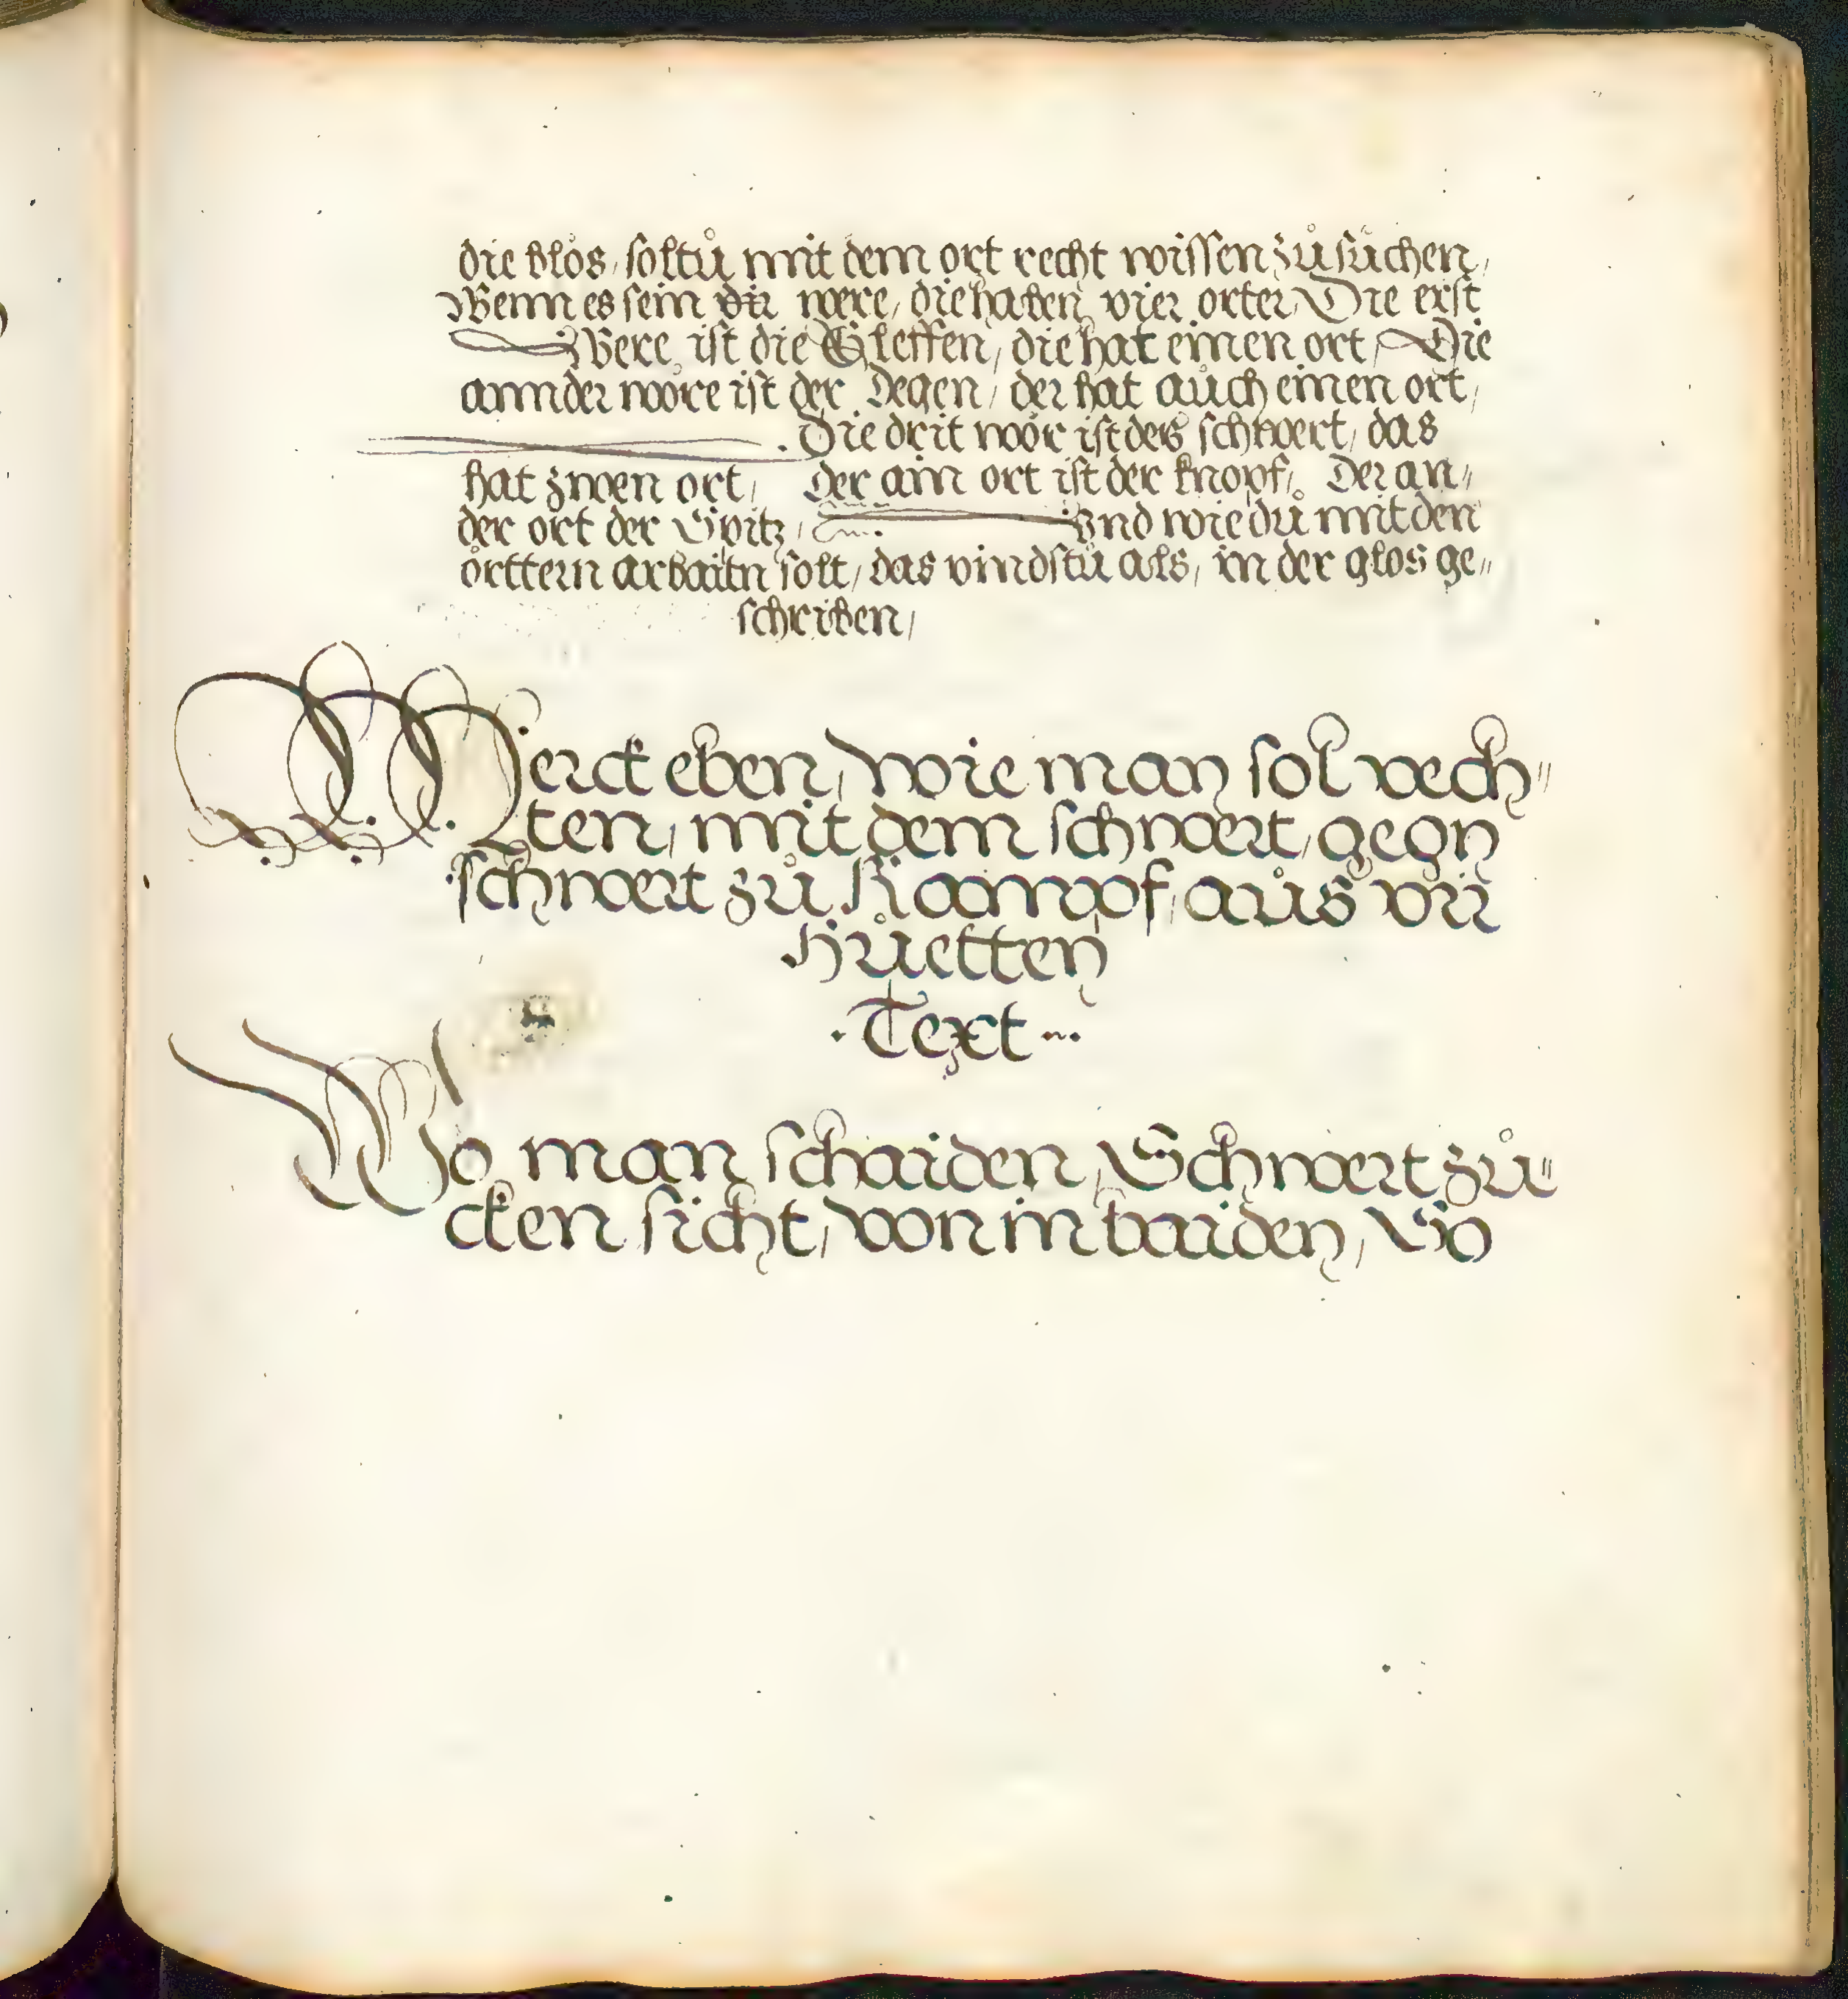 die blös, soltů mit dem ort recht wissen zůsůchen,
Wenn es sein vir were, die haben vier örter, Die erst
Were ist die Gleffen, die hat einen ort, Die
annder wöre ist der Degen, der hat aůch einen ort,
Die drit wör ist des schwert, das
hat zwen ort, Der ain ort ist der knopf, Der an„
der ort der Spitz, Vnd wie dů mit den
örttern arbaitn solt, das vindstů als, in der glos ge„
schriben,
Merck eben, wie man sol vech„
ten, mit dem schwert, gegn
schwert zů Kampf, aůs vir
Hůetten
Text
Wo man schaiden, Schwert zů„
cken sicht, von in baiden, So